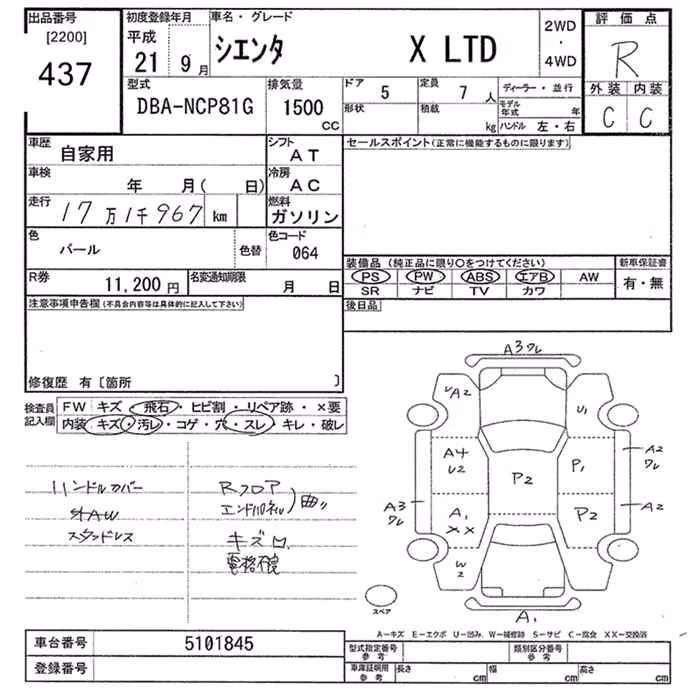 出品番号
[2200]
437
初度登録年月
平成
21 9月
車名・グレード
シエンタ X LTD
2WD
・
4WD
評価点
R
外装 内装
C C
型式
DBA-NCP81G
排気量
1500
CC
ドア 5
形状
定員 7人
積載 kg
ディーラー・並行
モデル年式 年
ハンドル 左・右
車歴
自家用
シフト
AT
車検
年 月( 日)
冷房
AC
走行
17万1千967 km
燃料
ガソリン
色
パール
色替
色コード
064
R券
11,200円
名変通知期限
月 日
セールスポイント(正常に機能するものに限ります)
装備品 (純正品に限り○をつけてください)
PS PW ABS エアB AW
SR ナビ TV カワ
新車保証書
有・無
後日品
注意事項申告欄(不具合内容等は具体的に記入して下さい)
修復歴 有〔箇所 〕
検査員
記入欄
FW キズ・飛石・ヒビ割・リペア跡・×要
内装 キズ・汚レ・コゲ・穴・スレ・キレ・破レ
ハンドルカバー
社外AW
スタッドレス
Rフロア
エンドパネル
曲り
キズ
A3ワレ
UA2
U1
A4
U2
P2
P1
A2
ワレ
A3
ワレ
A1
XX
P2
A2
W2
A1
スペア
A-キズ E-エクボ U-凹み W-補修跡 S-サビ C-腐食 XX-交換済
車台番号 5101845
登録番号
型式指定番号
参考
類別区分番号
参考
車庫証明用
参考
長さ cm 幅 cm 高さ cm